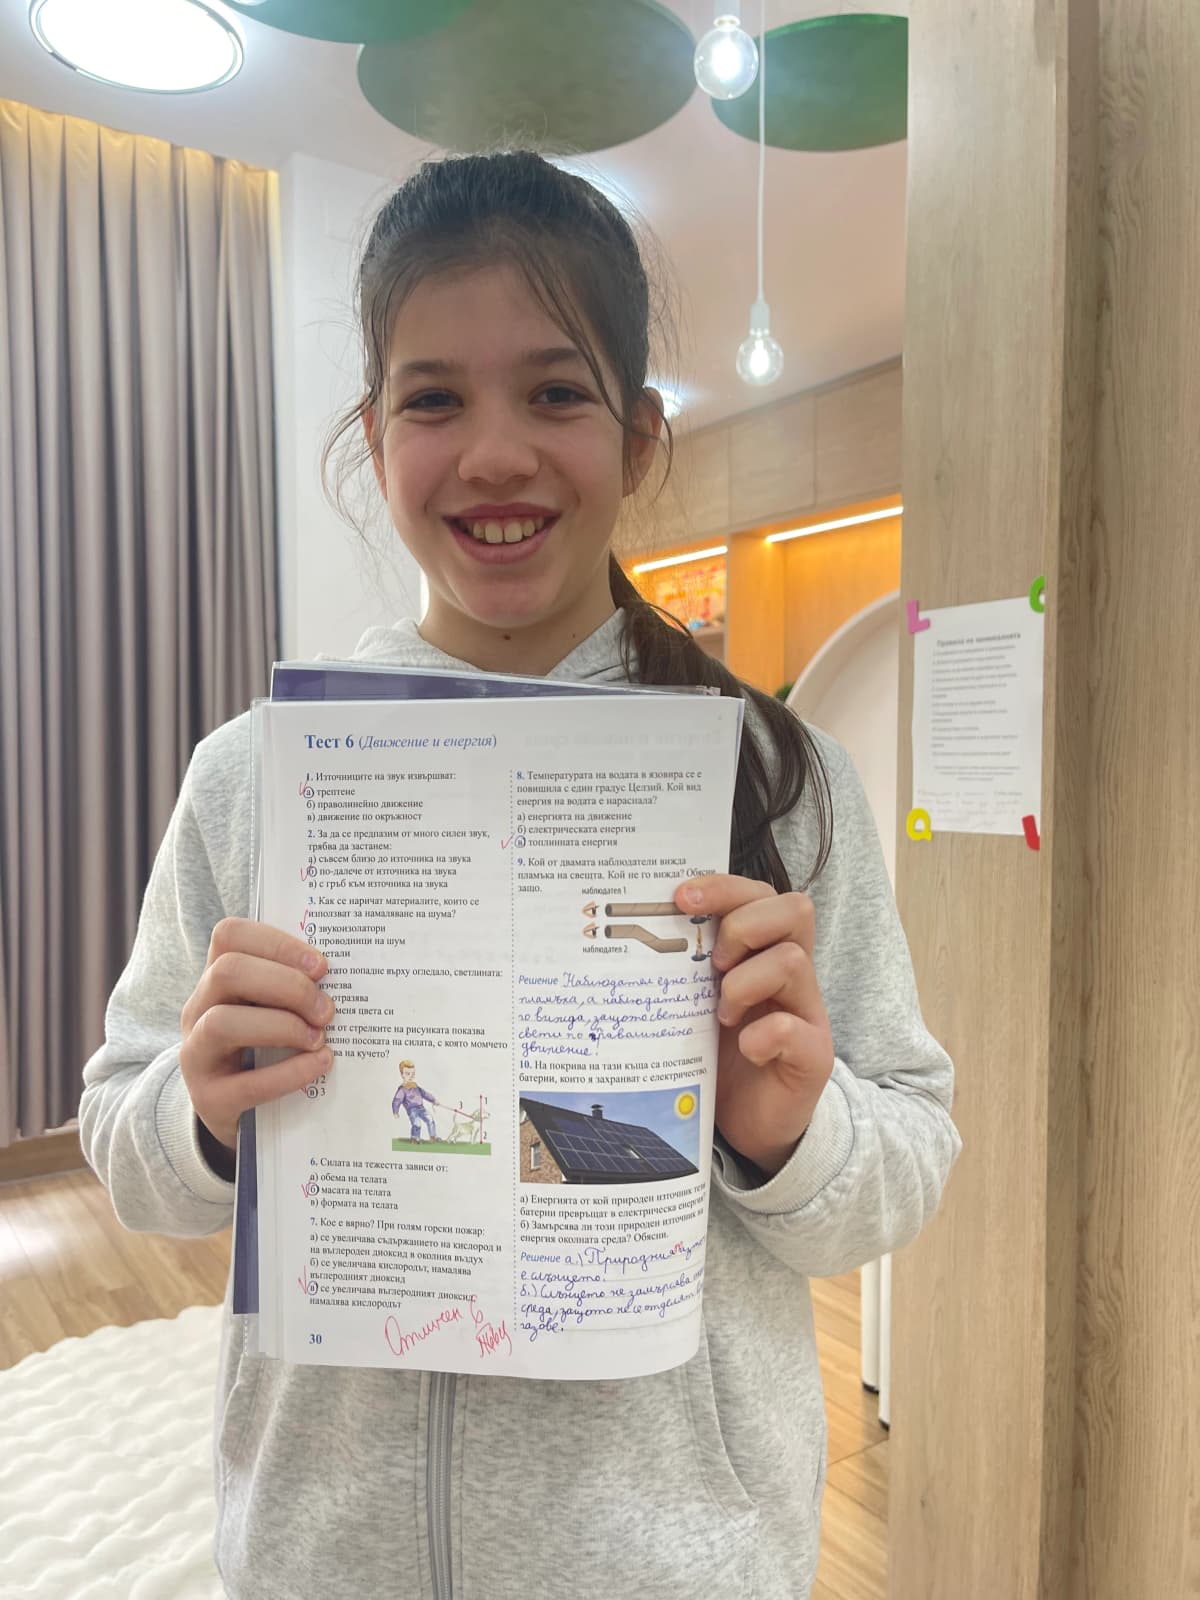 Тест 6 (Движение и енергия)
1. Източниците на звук извършват:
а) трептене
б) праволинейно движение
в) движение по окръжност
2. За да се предпазим от много силен звук,
трябва да застанем:
а) съвсем близо до източника на звука
б) по-далече от източника на звука
в) с гръб към източника на звука
3. Как се наричат материалите, които се
използват за намаляване на шума?
а) звукоизолатори
б) проводници на шум
метали
огато попадне върху огледало, светлината:
изчезва
отразява
меня цвета си
от стрелките на рисунката показва
вилно посоката на силата, с която момчето
ва на кучето?
2
в) 3
1
3
2
6. Силата на тежестта зависи от:
а) обема на телата
б) масата на телата
в) формата на телата
7. Кое е вярно? При голям горски пожар:
а) се увеличава съдържанието на кислород и
на въглероден диоксид в околния въздух
б) се увеличава кислородът, намалява
въглеродният диоксид
в) се увеличава въглеродният диоксид,
намалява кислородът
30
Отличен 6
8. Температурата на водата в язовира се е
повишила с един градус Целзий. Кой вид
енергия на водата е нараснала?
а) енергията на движение
б) електрическата енергия
в) топлинната енергия
9. Кой от двамата наблюдатели вижда
пламъка на свещта. Кой не го вижда? Обясни
защо.
наблюдател 1
наблюдател 2
Решение Наблюдател едно
пламъка, а наблюдател две
го вижда, защото светлина
свети по праволинейно
движение!
10. На покрива на тази къща са поставени
батерии, които я захранват с електричество.
а) Енергията от кой природен източник тези
батерии превръщат в електрическа енергия?
б) Замърсява ли този природен източник на
енергия околната среда? Обясни.
Решение а.) Природния
е слънцето.
б.) Слънцето не замърсява
среда, защото не се отделят
газове.
Правила на занималнята